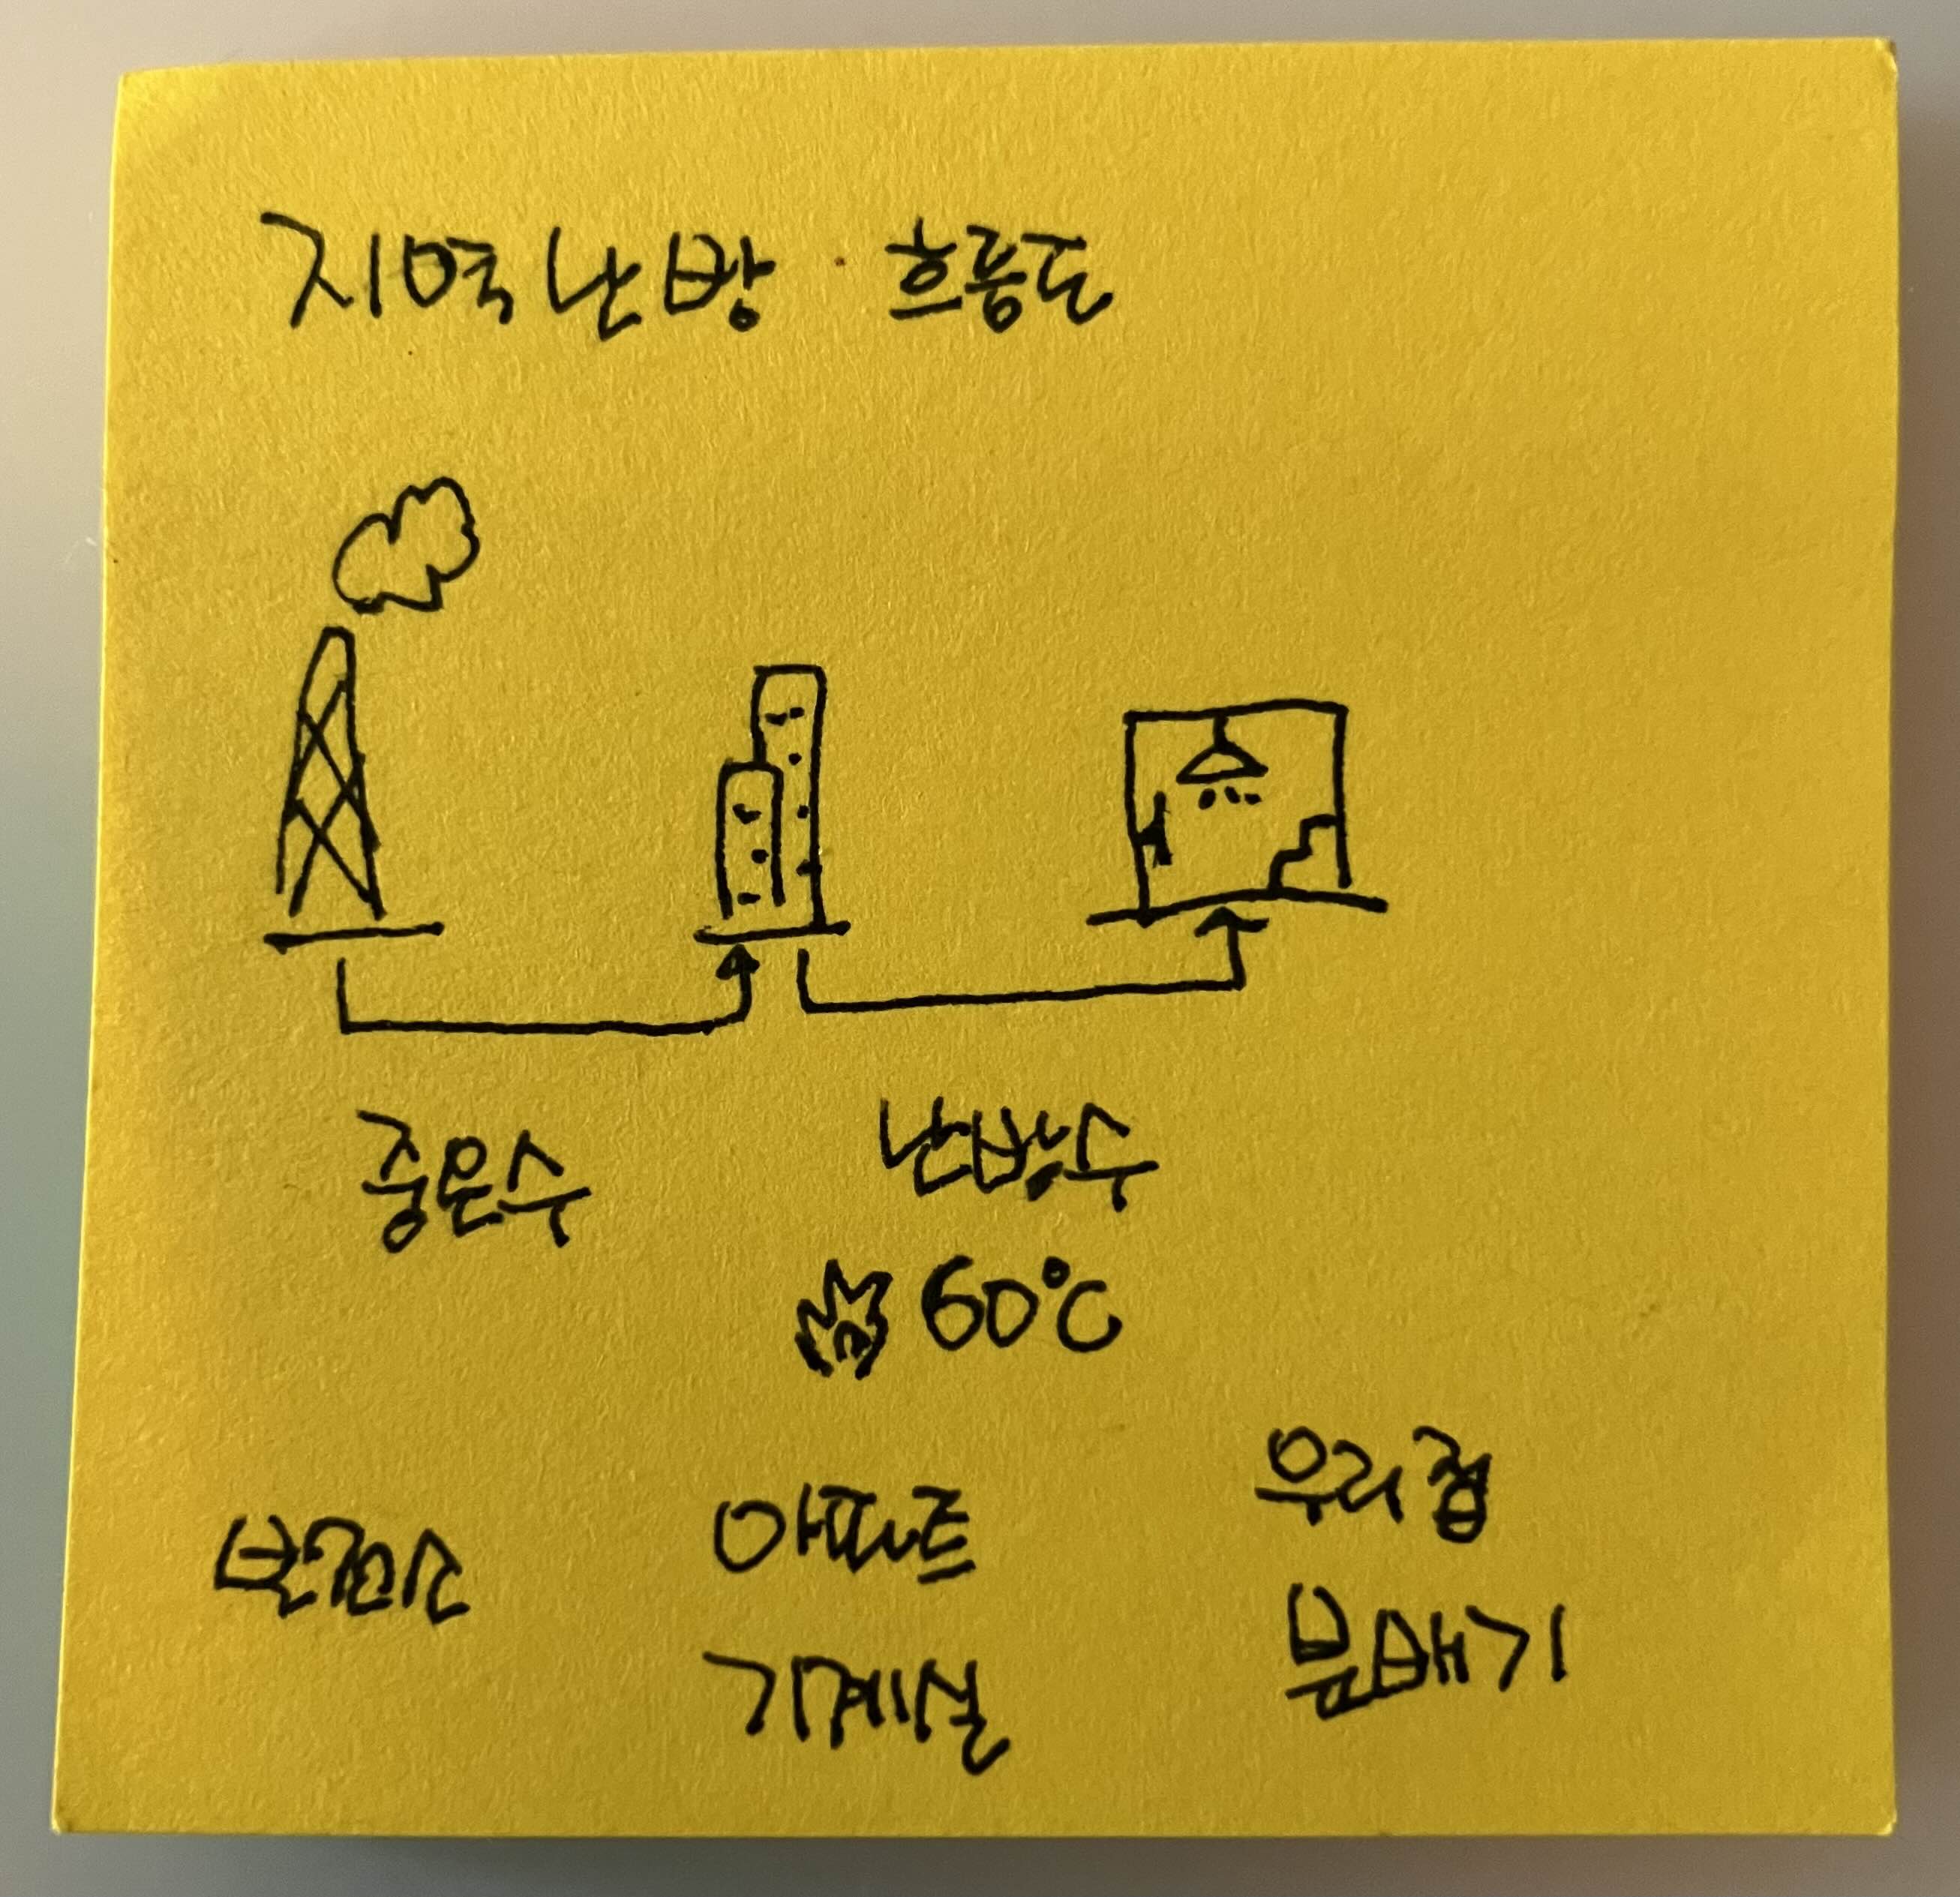 지역난방 흐름도
중온수
난방수
60℃
아파트
기계실
우리집
분배기